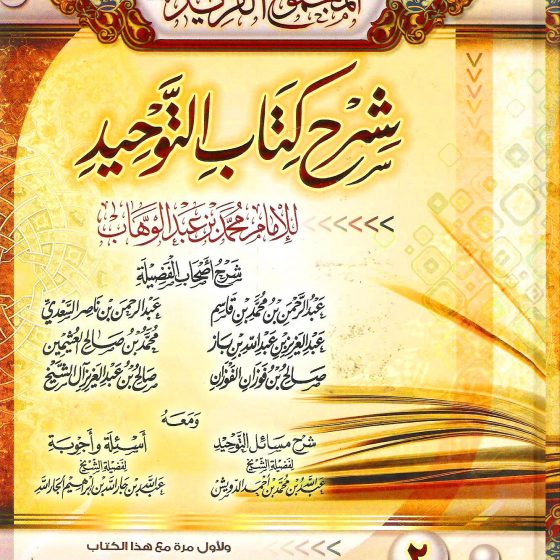 المجموع الفريد
شَرْحُ كِتَابِ التَّوْحِيدِ
للإمام محمد بن عبد الوهاب
شرح أصحاب الفضيلة
عبد الرحمن بن محمد بن قاسم عبد الرحمن بن ناصر السعدي
عبد العزيز بن عبد الله بن باز محمد بن صالح العثيمين
صالح بن فوزان الفوزان صالح بن عبد العزيز آل الشيخ
ومعه
شرح مسائل التوحيد أسئلة وأجوبة
لفضيلة الشيخ لفضيلة الشيخ
عبد الله بن محمد بن أحمد الدويش عبد الله بن جار الله بن إبراهيم الجار الله
ولأول مرة مع هذا الكتاب
٢